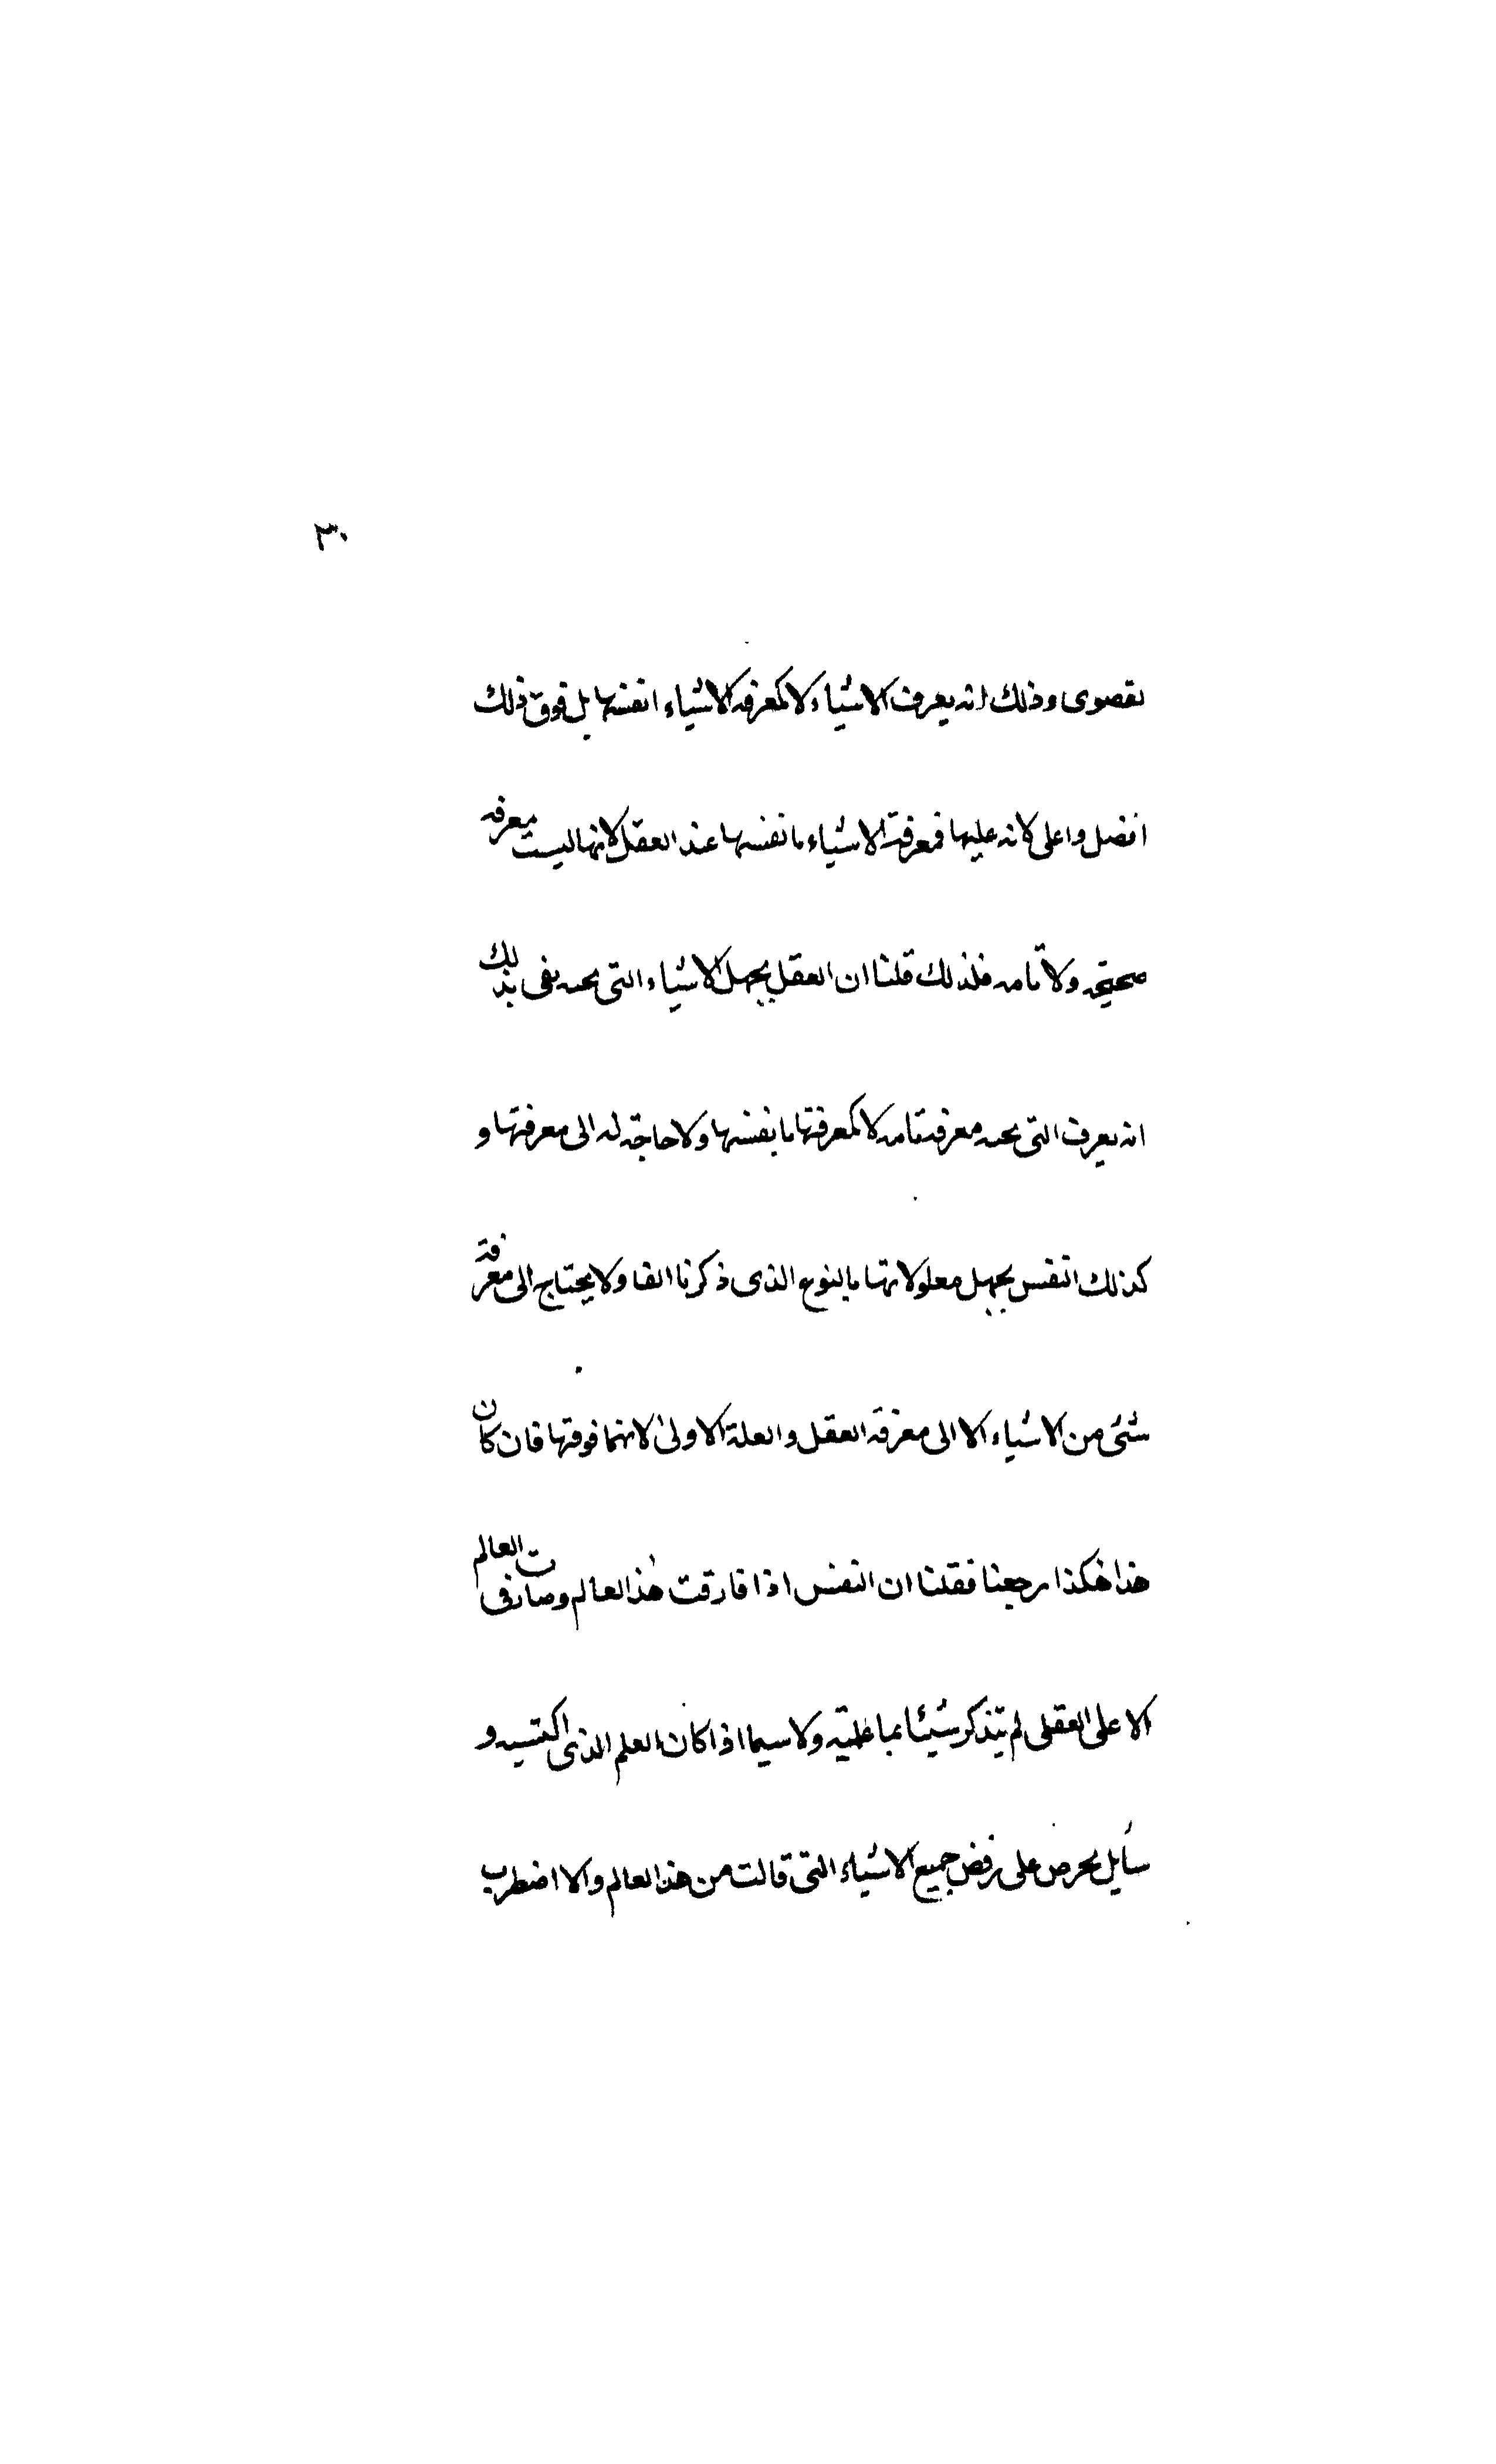 ٣٠
لقصوى وذلك انه يعرف الاشياء لا كمعرفه الاشياء انفسها بل فوق ذلك
افضل واعلى لانه عليها فمعرفة الاشياء بانفسها عند العقل لانها ليست معرفه
صحيحه ولا تامه فلذلك قلنا ان العقل يجهل الاشياء التى تحته يفى بذلك
انه يعرف التى تحته معرفه تامه لا كمعرفتها بانفسها ولا حاجة له الى معرفتها و
كذلك النفس يجهل معلولاتها بالنوع الذى ذكرنا انفا ولا يحتاج الى معرفة
شئ من الاشياء الا الى معرفة العقل والعلة الاولى لانهما فوقها فان كان
هذا هكذا رجعنا فقلنا ان النفس اذا فارقت هذا العالم وصارت فى العالم
الاعلى العقلى لم يتذكر شيئا بما علمته ولا سيما اذا كان العلم الذى اكتسبه و
سأيل يحرص على رفض جميع الاشياء التى قالت من هذا العالم والا اضطرب